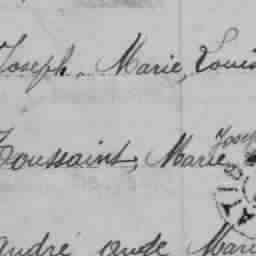 Joseph, Marie, Louis
Joseph
Toussaint, Marie
André Ange Marie